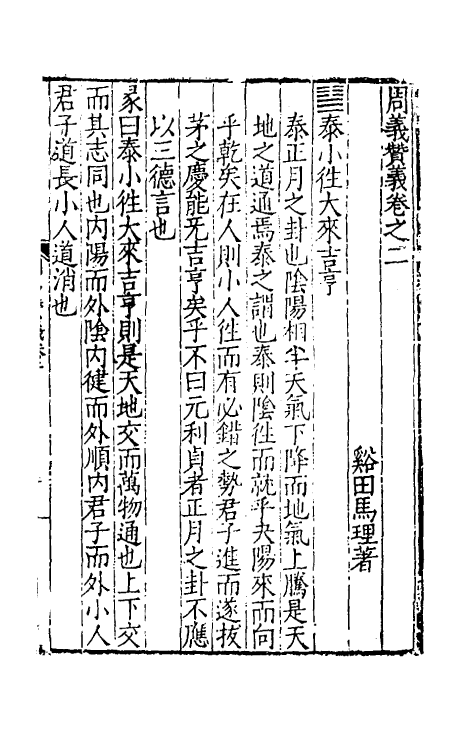 周義贊義卷之二
谿田馬理著
䷊泰小徃大來吉亨
泰正月之卦也陰陽相半天氣下降而地氣上騰是天
地之道通焉泰之謂也泰則陰徃而就乎夬陽來而向
乎乾矣在人則小人徃而有必錯之勢君子進而遂拔
茅之慶能旡吉亨矣乎不曰元利貞者正月之卦不應
以三德言也
彖曰泰小徃大來吉亨則是天地交而萬物通也上下交
而其志同也内陽而外陰内健而外順内君子而外小人
君子道長小人道消也